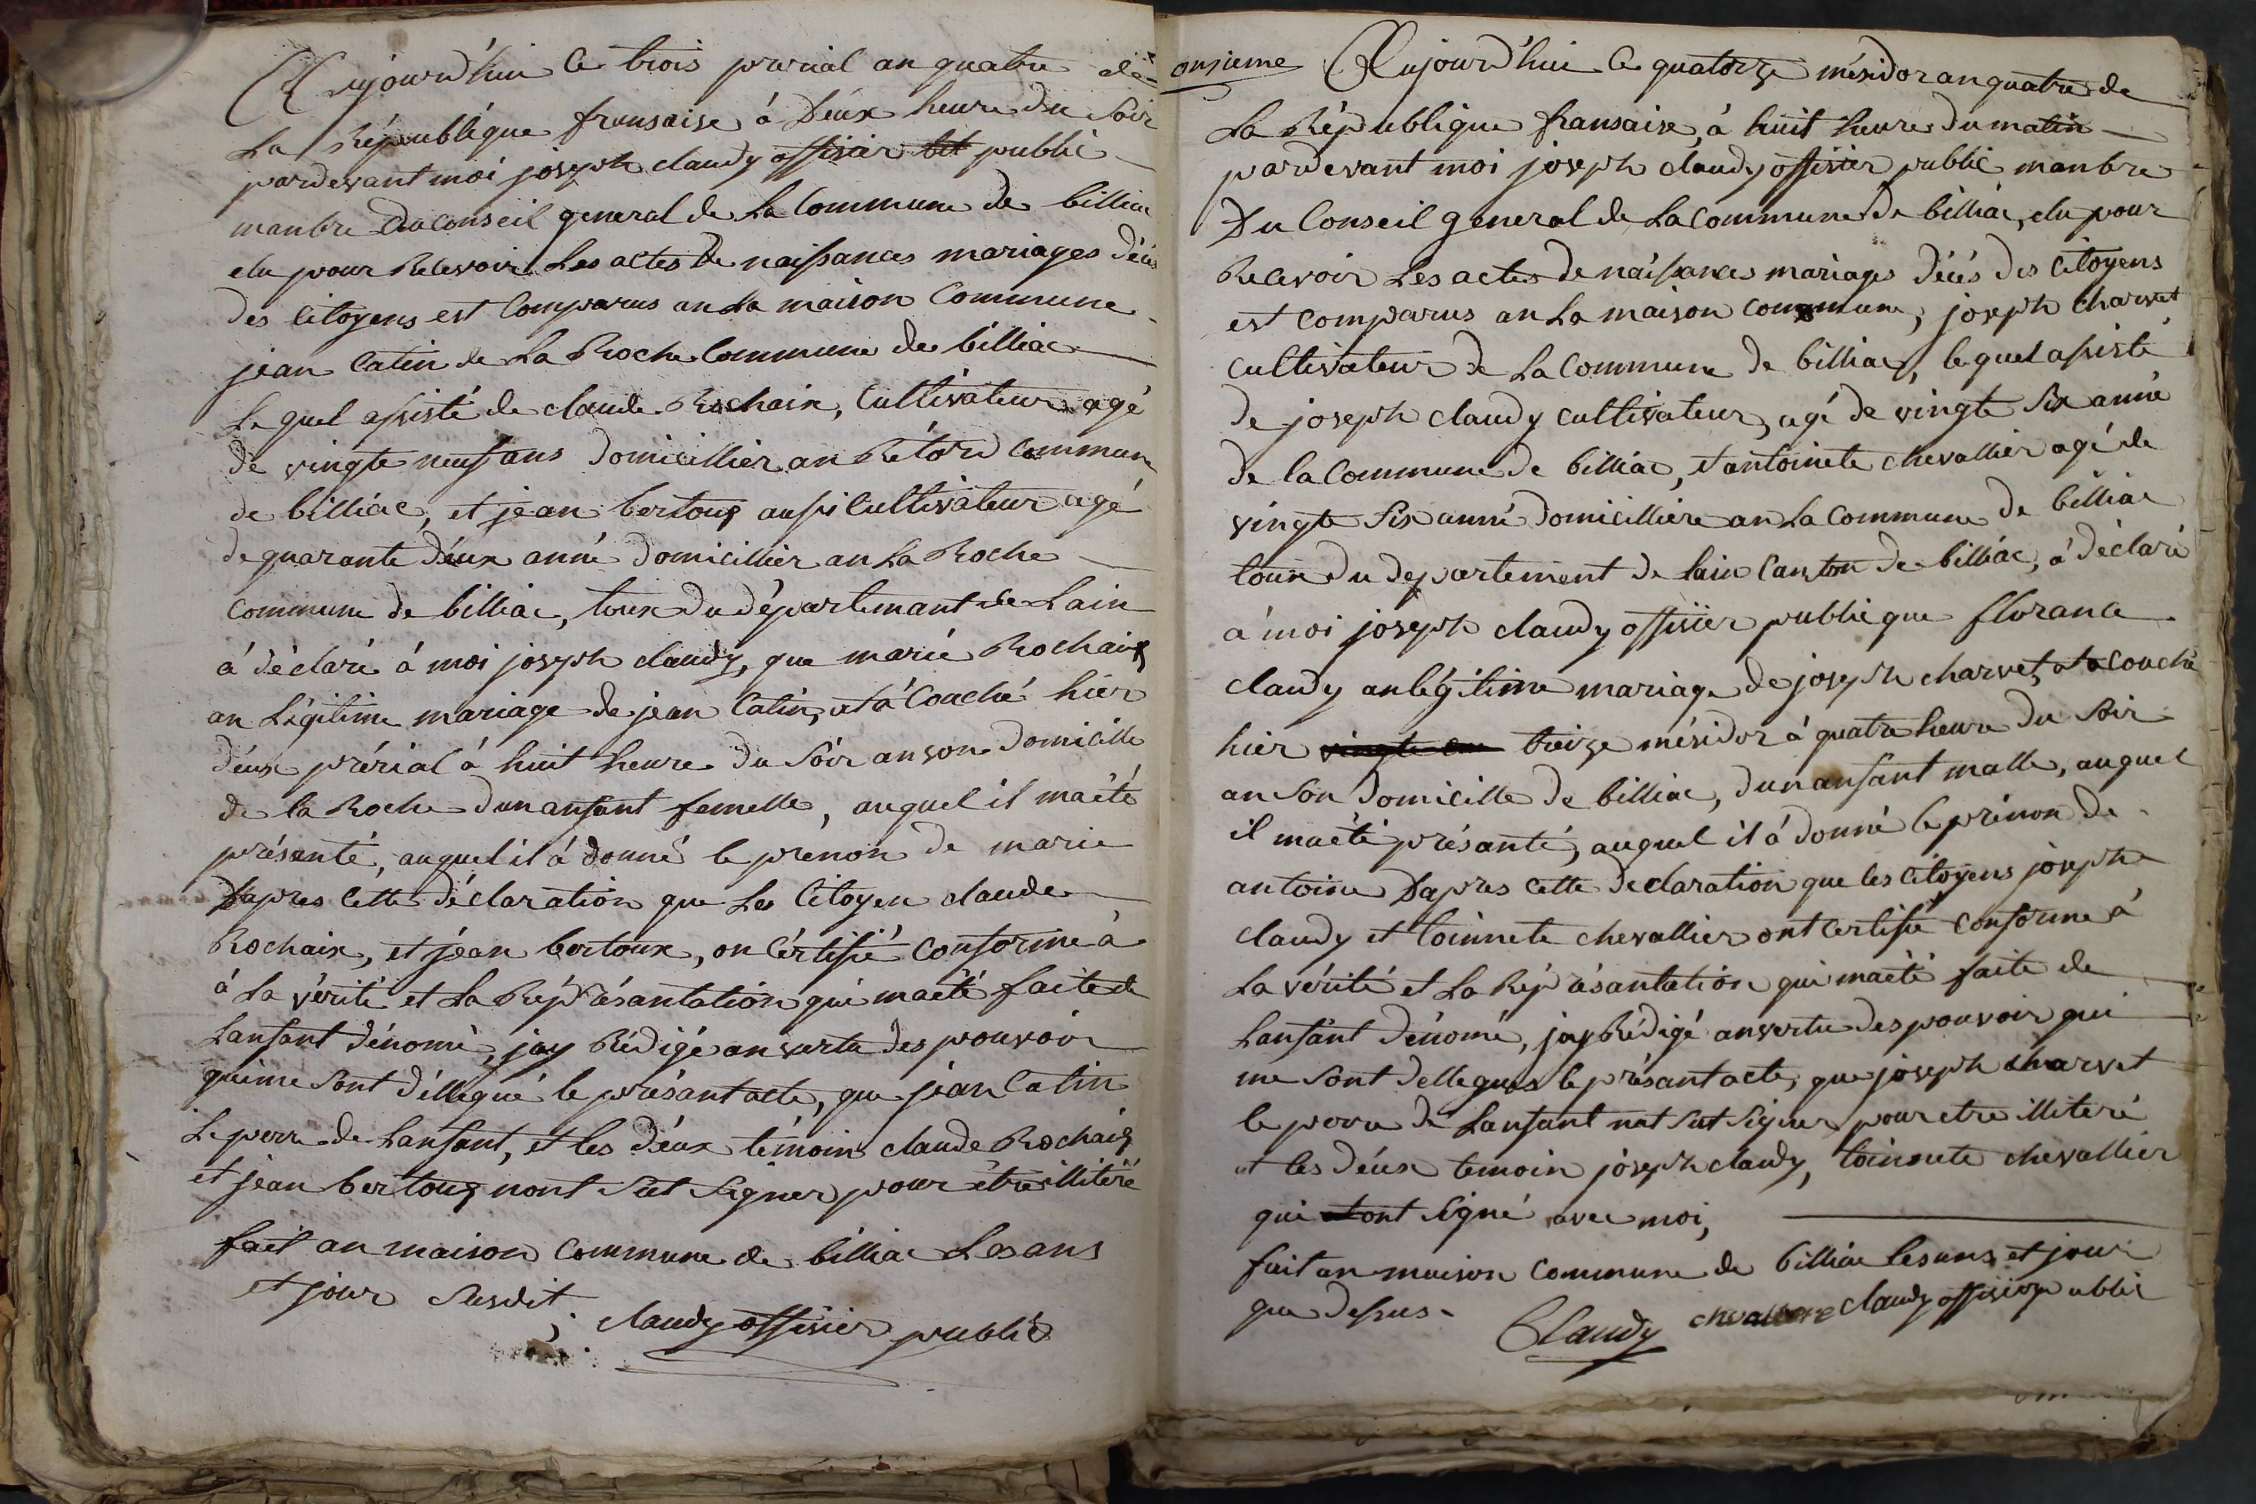 Aujourd'hui le trois prerial an quatre de
La République fransaise à deux heure du Soir
pardevant moi joseph claudy offisier public
manbre du conseil general de La Commune de billiac
elu pour Recevoir Les actes de naissances mariages décés
des Citoyens est Comparus an La maison Commune
jean Catin de La Roche Commune de billiac
Le quel assisté de claude Rochaix, Cultivateur agé
de vingte neuf ans domicillier an Retord Commune
de billiac, et jean bertoux aussi Cultivateur agé
de quarante deux anné domicillier an La Roche
Commune de billiac, toux du département de Lain
à déclaré à moi joseph claudy, que marie Rochaix
an Légitime mariage de jean Catin, at à Couché hier
deux prérial à huit heure du Soir anson domicille
de la Roche dun ansfant femelle, auquel il maété
présenté, auquel il à donné le prenon de marie
Dapres Cette déclaration que Les Citoyen claude
Rochaix, et jean bertoux, on Certifié Conforme à
à La vérité et La Réprésantation qui maété faite de
Lanfant dénomé, jay Rédigé anvertu des pouvoir
qui me Sont déllégué le présant acte, que jean Catin
Le perre de Lanfant, et les deux témoin claude Rochaix
et jean bertoux nont Sut Signer pour être illitéré
fait an maison Commune de billiac Les ans
et jour Susdit,
claudy offisier public
onsieme Aujourd'hui le quatorze mésidor an quatre de
La République fransaise, à huit heure du matin
pardevant moi joseph claudy offisier public manbre
Du Conseil general de La Commune de billiac, elu pour
Recevoir Les actes de naissances mariages décés des Citoyens
est Comparus an La maison Commune, joseph charvet
Cultivateur de La Commune de billiac, le quel assisté
de joseph claudy Cultivateur, agé de vingte Six anné
de la Commune de billiac, et antoinete chevallier agé de
vingte Six anné domicilliere an La Commune de billiac
toux du departement de lain Canton de billiac, à déclaré
à moi joseph claudy offisier public que florance
claudy an légitime mariage de joseph charvet, at a Couché
hier treize mésidor à quatre heure du Soir
an Son domicille de billiac, dun ansfant malle, auquel
il maété présanté, auquel il à donné le prénon de
antoine Dapres Cette declaration que les Citoyens joseph
claudy et toinnete chevallier ont Certifié Conforme à
La vérité et La Réprésantation qui maété faite de
Lanfant dénomé, jay Rédigé anvertu des pouvoir qui
me Sont dellegués le présant acte, que joseph charvet
le perre de Lanfant nat Sut Signer pour etre illiteré
et les deux temoin joseph claudy, toinnete chevallier
qui ont Signé avec moi,
fait an maison Commune de billiac les ans et jour
que dessus.
Claudy chevalliere claudy offisier public